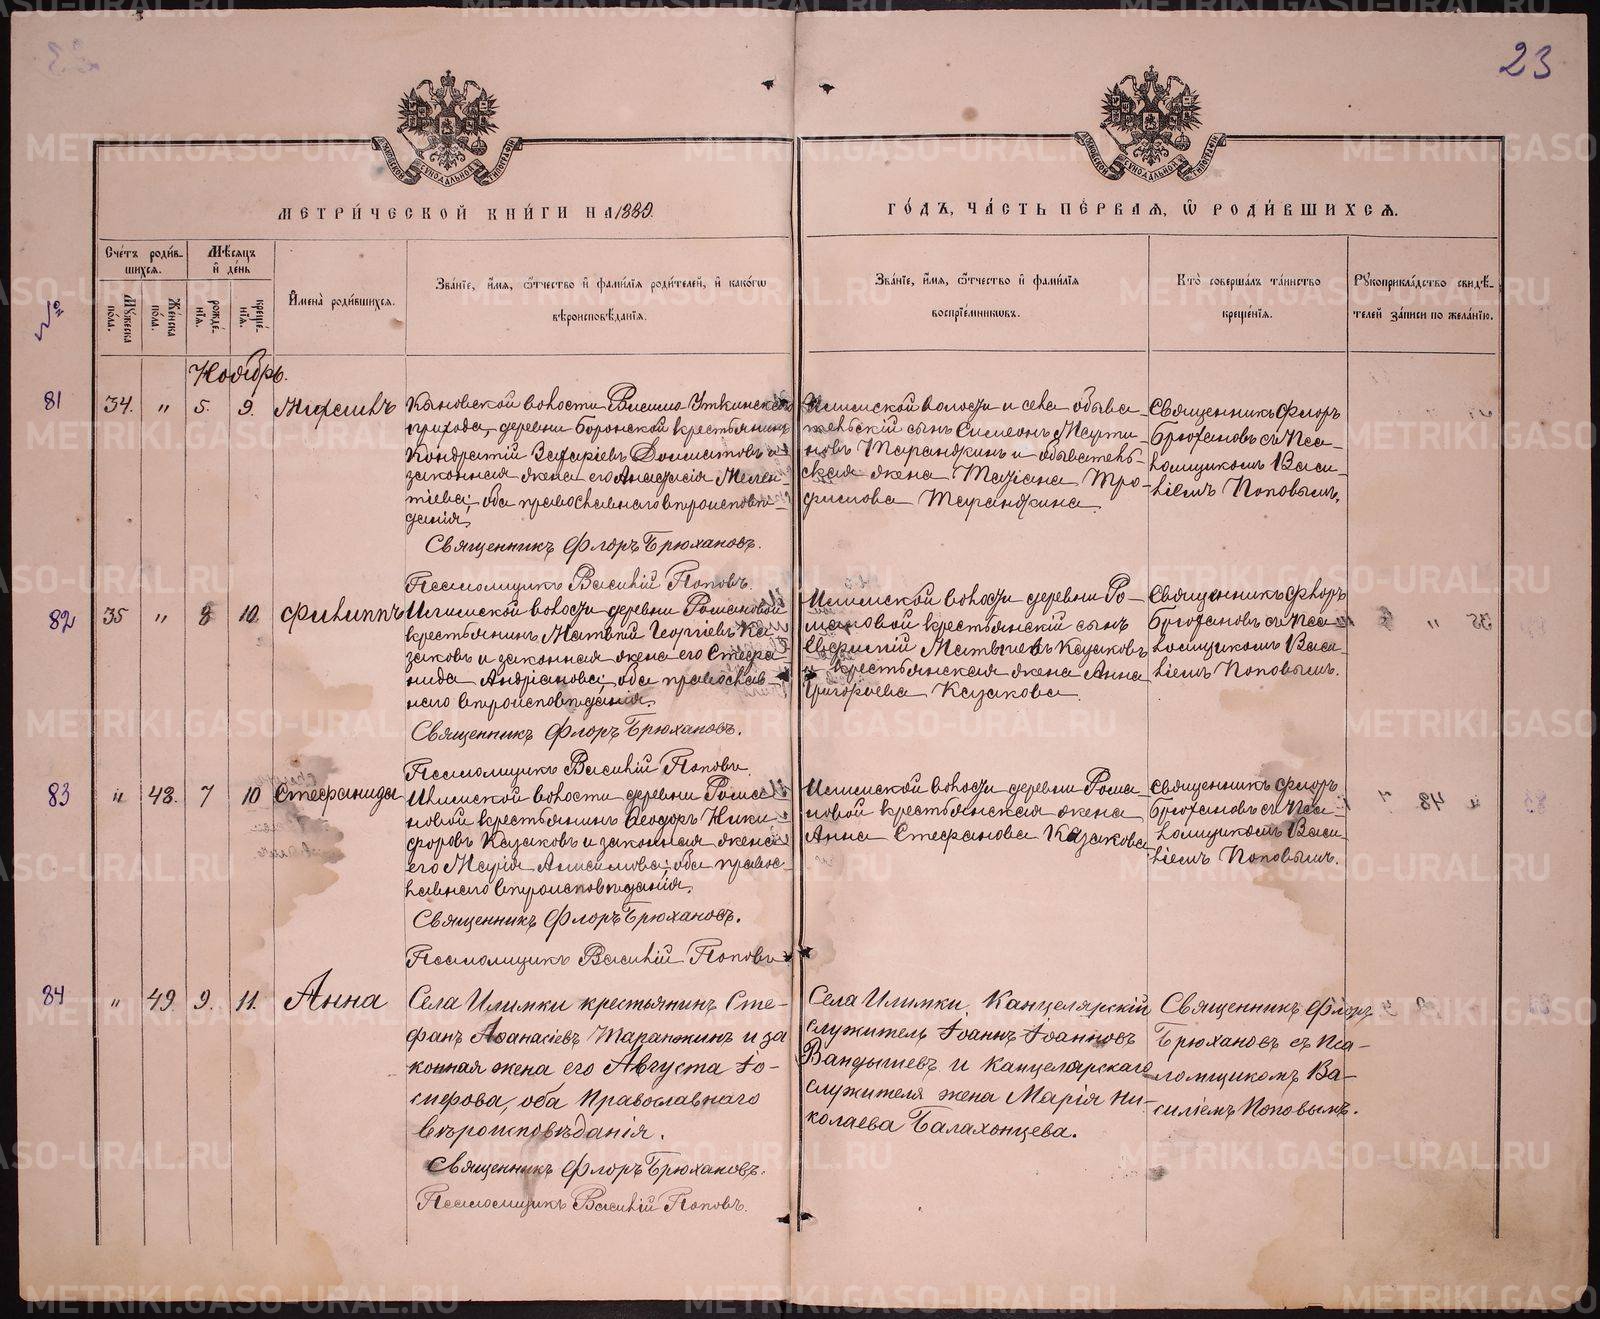 23
МЕТРИ́ЧЕСКОЙ КНИ́ГИ НА 1889.
ГО́ДЪ, ЧА́СТЬ ПЕ́РВАѦ, Ѿ РОДИ́ВШИХСѦ.
Сче́тъ роди́в-
шихсѧ.
Мѣ́сѧцъ
и҆ де́нь
И҆мена̀ роди́вшихсѧ.
Зва́нїе, и҆́мѧ, ѻ҆́тчество и҆ фами́лїѧ роди́телей, и҆ како́гѡ
вѣроисповѣ́данїѧ.
Зва́нїе, и҆́мѧ, ѻ҆́тчество и҆ фами́лїѧ
воспрїе́мникѡвъ.
Кто̀ соверша́лъ та́инство
креще́нїѧ.
Рꙋкоприкла́дство свидѣ́-
телей за́писи по жела́нїю.
Мꙋ́жеска
по́ла.
Же́нска
по́ла.
рожде́-
нїѧ.
креще́-
нїѧ.
№
Ноябрь.
81
34.
"
5.
9.
Кыновской волости Висимо Уткинскаго
прихода, деревни Боронской крестьянинъ
Кондратій Захаріевъ
законная жена его Анастасія Мелен-
тіева; оба православнаго вѣроисповѣ-
данія.
Священникъ Флоръ Брюхановъ.
Псаломщикъ Василій Поповъ.
Илимской волости и села обыва-
тельскій сынъ Симеонъ Марти-
новъ Таранжинъ и обыватель-
ская жена Татіана Тро-
фимова Таранжина.
Священникъ Флоръ
Брюхановъ съ Пса-
ломщикомъ Васи-
ліемъ Поповымъ.
82
35
"
8
10.
Филиппъ
Илимской волости деревни Романовой
крестьянинъ Матвѣй Георгіевъ Ка-
заковъ и законная жена его Стефа-
нида Андріанова; оба православ-
наго вѣроисповѣданія.
Священникъ Флоръ Брюхановъ.
Псаломщикъ Василій Поповъ.
Илимской волости деревни Ро-
мановой крестьянскій сынъ
Евфимій Матвѣевъ Казаковъ
и крестьянская жена Анна
Григорьева Казакова.
Священникъ Флоръ
Брюхановъ съ Пса-
ломщикомъ Васи-
ліемъ Поповымъ.
83
"
48.
7
10
Стефанида
Илимской волости деревни Рома-
новой крестьянинъ Ѳеодоръ Ники-
форовъ Казаковъ и законная жена
его Марія Анисимова; оба право-
славнаго вѣроисповѣданія.
Священникъ Флоръ Брюхановъ.
Псаломщикъ Василій Поповъ
Илимской волости деревни Рома-
новой крестьянская жена
Анна Стефанова Казакова
Священникъ Флоръ
Брюхановъ съ Пса-
ломщикомъ Васи-
ліемъ Поповымъ.
84
"
49.
9.
11.
Анна
Села Илимки крестьянинъ Сте-
фанъ Аѳанасіевъ Таранжинъ и за
конная жена его Августа Іо-
сифова, оба Православнаго
вѣроисповѣданія.
Священникъ Флоръ Брюхановъ.
Псаломщикъ Василій Поповъ.
Села Илимки, Канцелярскій
служитель Іоаннъ Іоанновъ
Вандышевъ и канцелярскаго
служителя жена Марія Ни-
колаева Балахонцева.
Священникъ Флоръ
Брюхановъ съ Пса-
ломщикомъ Ва-
силіемъ Поповымъ.
METRIKI.GASO-URAL.RU